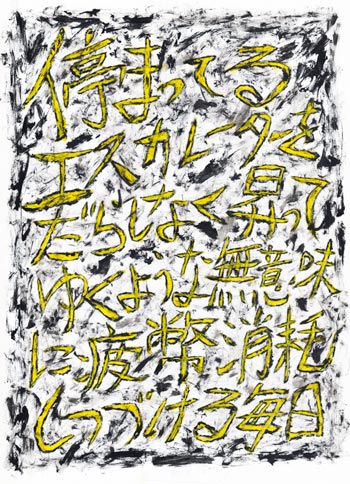 停まってる
エスカレーターを
だらしなく昇って
ゆくような無意味
に疲幣消耗
しつづける毎日